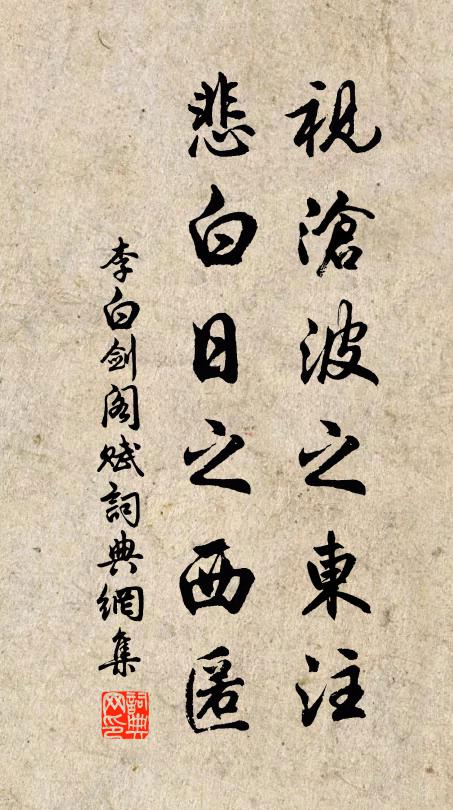 視滄波之東注
悲白日之西匿
李白剑阁赋詞典網集
詞典网印